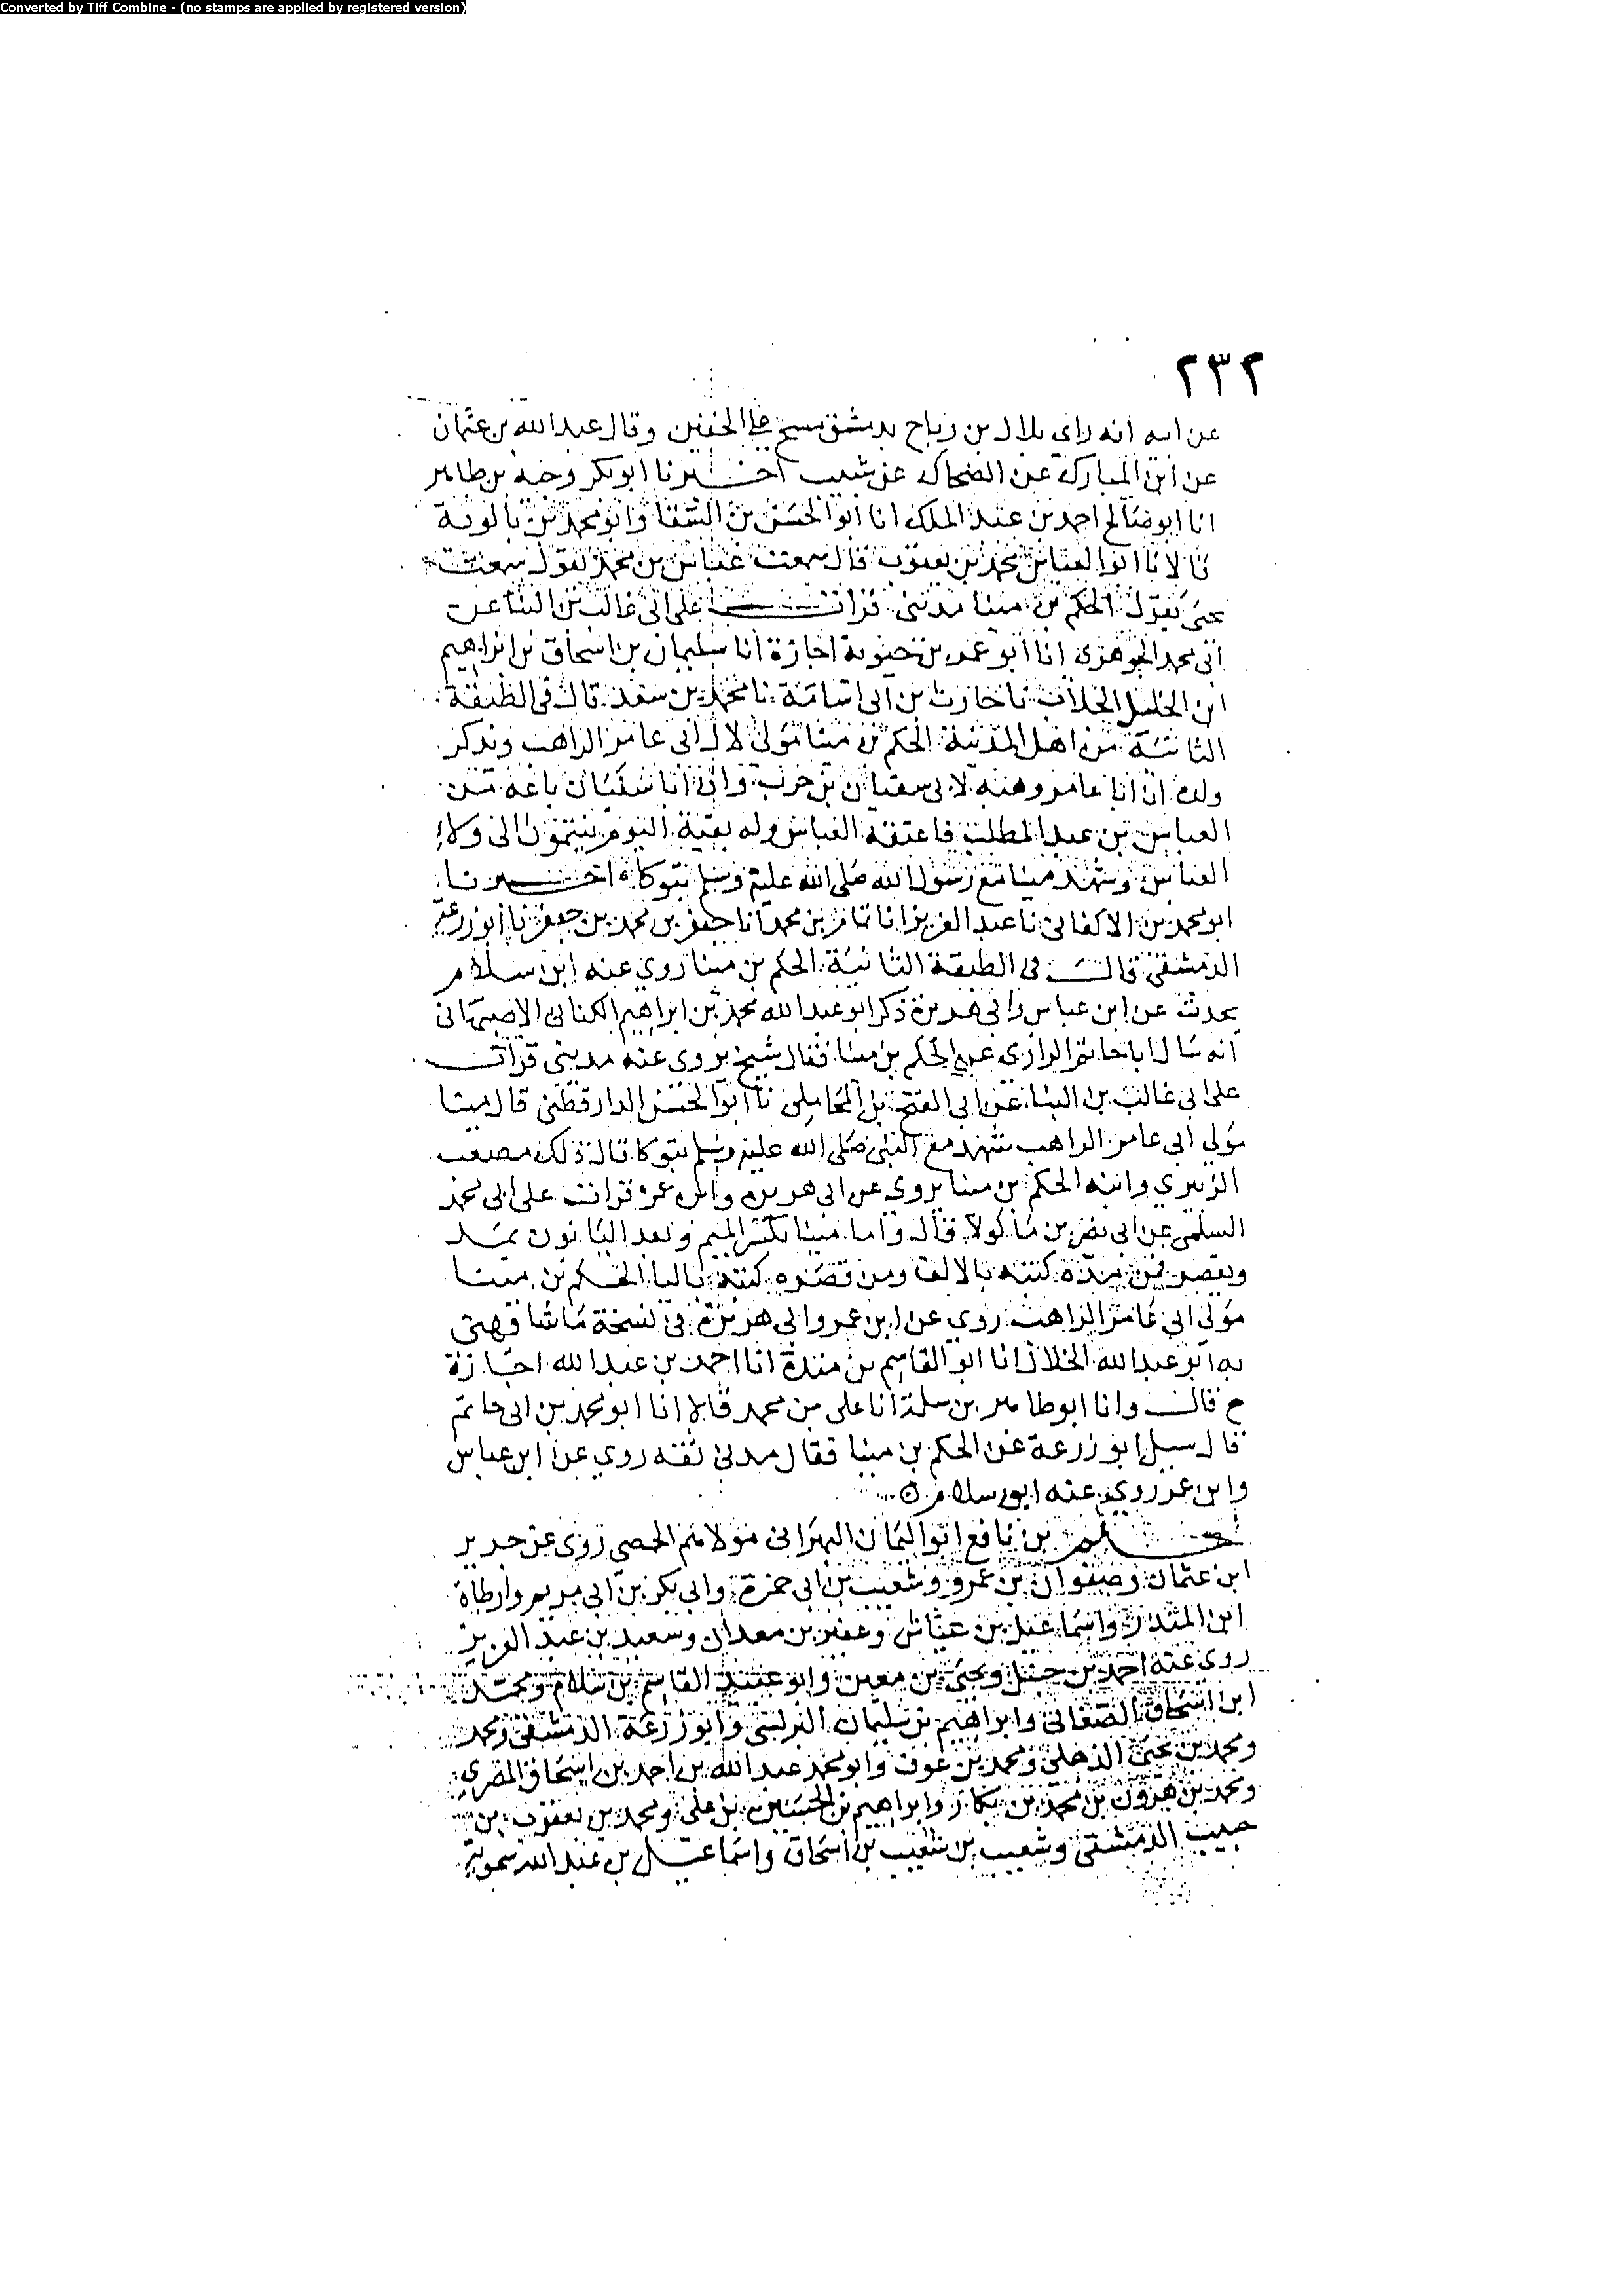 Converted by Tiff Combine - (no stamps are applied by registered version)
٢٣٢
عن ابيه انه راى بلال بن رباح بدمشق يمسح على الخفين وقال عبد الله بن عثمان
عن ابن المبارك عن الضحاك عن شبيب اخبرنا ابو بكر وجيه بن طاهر
انا ابو صالح احمد بن عبد الملك انا ابو الحسن بن السقا وابو محمد بن بالوية
قالا نا ابو العباس محمد بن يعقوب قال سمعت عباس بن محمد يقول سمعت
يحيى يقول الحكم بن مينا مديني قرات على ابي غالب بن البنا عن
ابي محمد الجوهري انا ابو عمر بن حيوية اجازة انا سليمان بن اسحاق بن ابراهيم
ابن الخليل الجلاب نا حارث بن ابي اسامة نا محمد بن سعد قال في الطبقة
الثانية من اهل المدينة الحكم بن مينا مولى لال ابي عامر الراهب ويذكر
ولده ان ابا عامر وهبه لابي سفيان بن حرب وان ابا سفيان باعه من
العباس بن عبد المطلب فاعتقه العباس وله بقية اليوم ينتمون الى ولاء
العباس وشهد مينا مع رسول الله صلى الله عليه وسلم تبوكاه اخبرنا
ابو محمد بن الاكفاني نا عبد العزيز انا تمام بن محمد انا جعفر بن محمد بن جعفر نا ابو زرعة
الدمشقي قال في الطبقة الثانية الحكم بن مينا روي عنه ابن سلام
يحدث عن ابن عباس وابي هريرة ذكر ابو عبد الله محمد بن ابراهيم الكناني الاصبهاني
انه سال ابا حاتم الرازي عن الحكم بن مينا فقال شيخ يروى عنه مديني قرات
على ابي غالب بن البنا عن ابي الفتح بن المحاملي نا ابو الحسن الدارقطني قال مينا
مولى ابي عامر الراهب شهد مع النبي صلى الله عليه وسلم تبوكا قال ذلك مصعب
الزبيري وابنه الحكم بن مينا يروي عن ابي هريرة وابن عمر قرات على ابي محمد
السلمي عن ابي نصر بن ماكولا قال واما مينا بكسر الميم وبعد اليا نون يمد
ويقصر فمن مده كتبه بالالف ومن قصره كتبه باليا الحكم بن مينا
مولى ابي عامر الراهب روى عن ابن عمر وابي هريرة في نسخة ما شافهني
به ابو عبد الله الخلال انا ابو القاسم بن مندة انا احمد بن عبد الله اجازة
ح قال وانا ابو طاهر بن سلمة انا علي بن محمد قالا انا ابو محمد بن ابي حاتم
قال سيل ابو زرعة عن الحكم بن مينا فقال مدني ثقه روي عن ابن عباس
وابن عمر روي عنه ابو سلام ه
بن نافع ابو اليمان البهراني مولاهم الحمصي روى عن حدير
ابن عثمان وصفوان بن عمرو وشعيب بن ابي حمزة وابي بكر بن ابي مريم وارطاة
ابن المنذر واسماعيل بن عياش وعفير بن معدان وسعيد بن عبد العزيز
روى عنه احمد بن حنبل ويحيى بن معين وابو عبيد القاسم بن سلام ومحمد
ابن اسحاق الصغاني وابراهيم بن سليمان البرلسي وابو زرعة الدمشقي ومحمد
ومحمد بن يحيى الذهلي ومحمد بن عوف وابو محمد عبد الله بن احمد بن اسحاق المصري
ومحمد بن هرون بن محمد بن بكار وابراهيم بن الحسين بن علي ومحمد بن يعقوب بن
حبيب الدمشقي وشعيب بن شعيب بن اسحاق واسماعيل بن عبد الله سموية